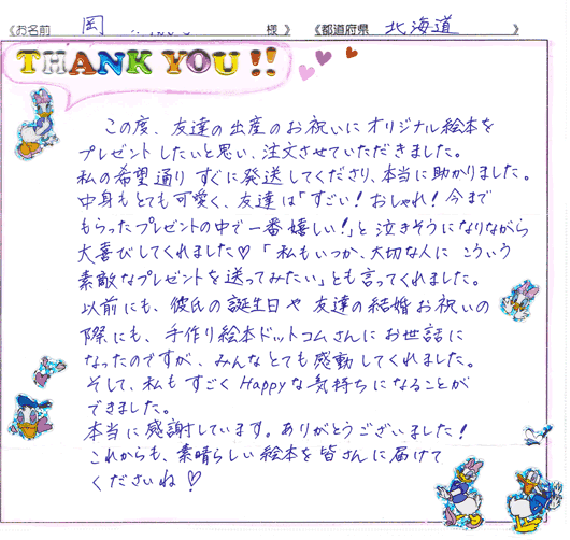 《お名前 岡 様 》 《都道府県 北海道 》
THANK YOU!!
この度、友達の出産のお祝いにオリジナル絵本を
プレゼントしたいと思い、注文させていただきました。
私の希望通りすぐに発送してくださり、本当に助かりました。
中身もとても可愛く、友達は「すごい!おしゃれ!今まで
もらったプレゼントの中で一番嬉しい!」と泣きそうになりながら
大喜びしてくれました♡「私もいつか、大切な人に こういう
素敵なプレゼントを送ってみたい」とも言ってくれました。
以前にも、彼氏の誕生日や友達の結婚お祝いの
際にも、手作り絵本ドットコムさんにお世話に
なったのですが、みんなとても感動してくれました。
そして、私もすごくHappyな気持ちになることが
できました。
本当に感謝しています。ありがとうございました!
これからも、素晴らしい絵本を皆さんに届けて
くださいね♡